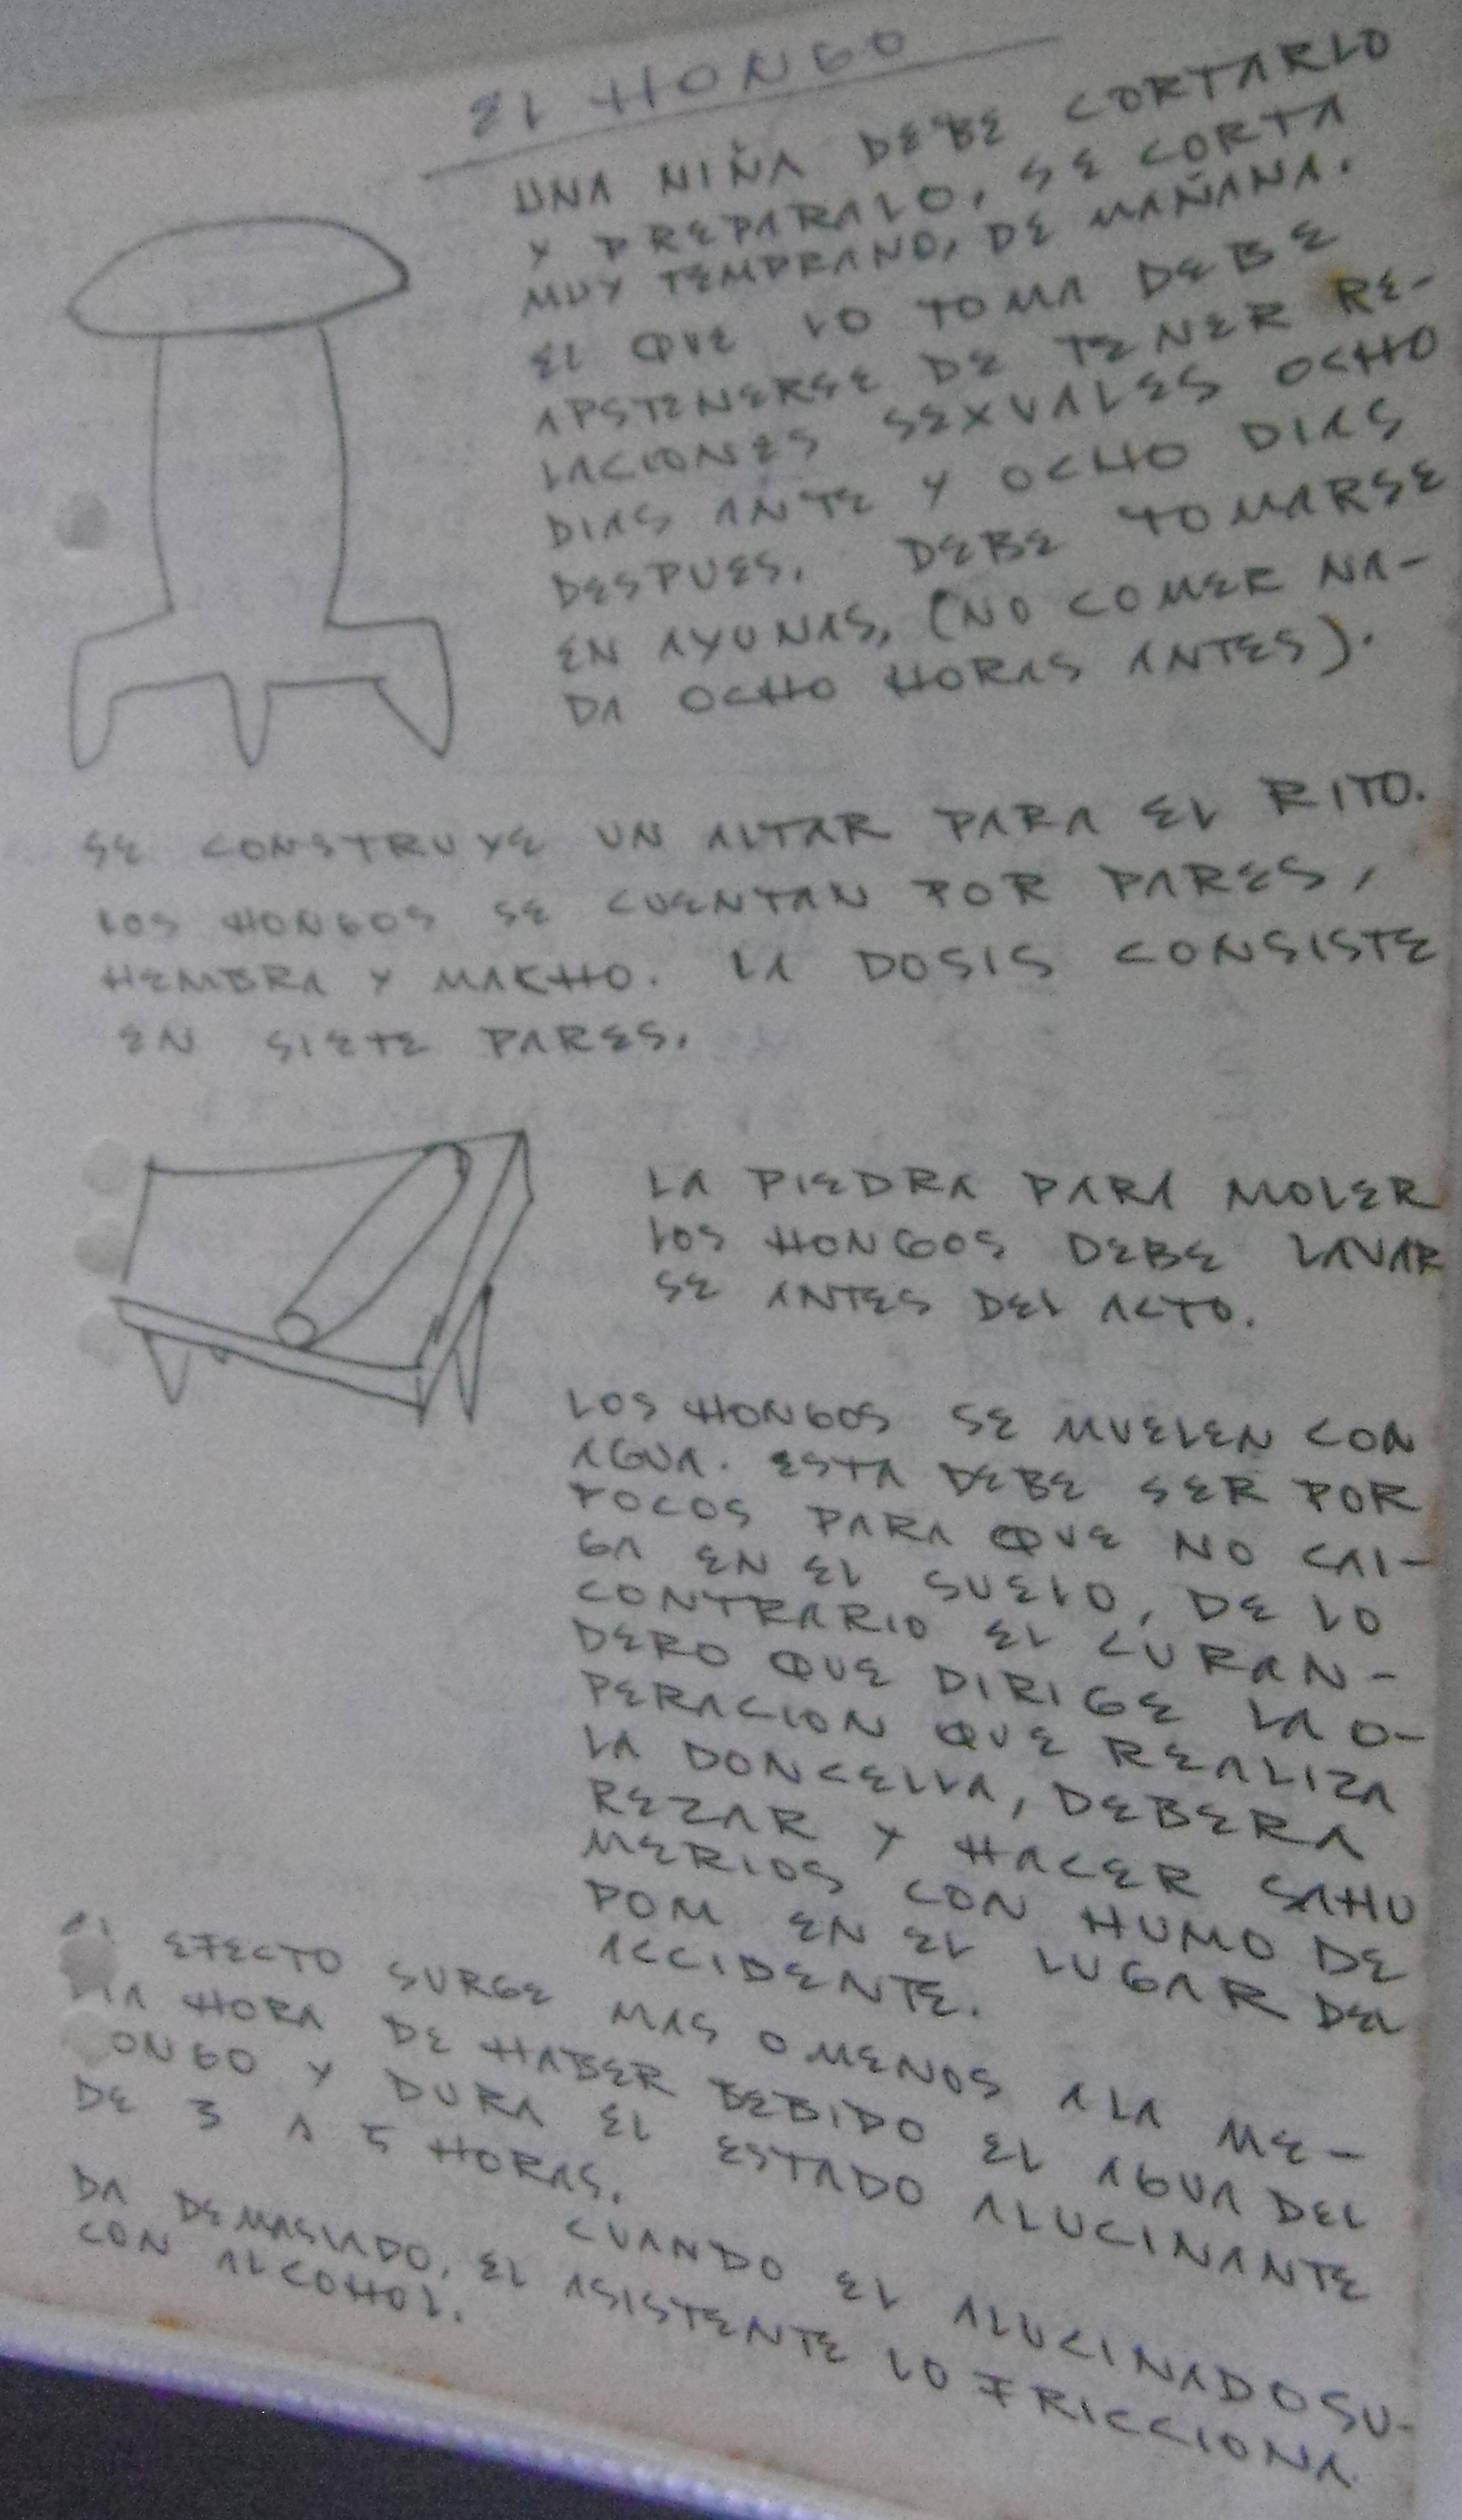 EL HONGO
UNA NIÑA DEBE CORTARLO
Y PREPARALO, SE CORTA
MUY TEMPRANO, DE MAÑANA.
EL QUE LO TOMA DEBE
APSTENERSE DE TENER RE-
LACIONES SEXUALES OCHO
DIAS ANTE Y OCHO DIAS
DESPUES. DEBE TOMARSE
EN AYUNAS, (NO COMER NA-
DA OCHO HORAS ANTES).
SE CONSTRUYE UN ALTAR PARA EL RITO.
LOS HONGOS SE CUENTAN POR PARES,
HEMBRA Y MACHO. LA DOSIS CONSISTE
EN SIETE PARES.
LA PIEDRA PARA MOLER
LOS HONGOS DEBE LAVAR
SE ANTES DEL ACTO.
LOS HONGOS SE MUELEN CON
AGUA. ESTA DEBE SER POR
POCOS PARA QUE NO CAI-
GA EN EL SUELO, DE LO
CONTRARIO EL CURAN-
DERO QUE DIRIGE LA O-
PERACION QUE REALIZA
LA DONCELLA, DEBERA
REZAR Y HACER SAHU
MERIOS CON HUMO DE
POM EN EL LUGAR DEL
ACCIDENTE.
EFECTO SURGE MAS O MENOS A LA ME-
DIA HORA DE HABER BEBIDO EL AGUA DEL
ONGO Y DURA EL ESTADO ALUCINANTE
DE 3 A 5 HORAS. CUANDO EL ALUCINADO SU-
DA DEMASIADO, EL ASISTENTE LO FRICCIONA
CON ALCOHOL.